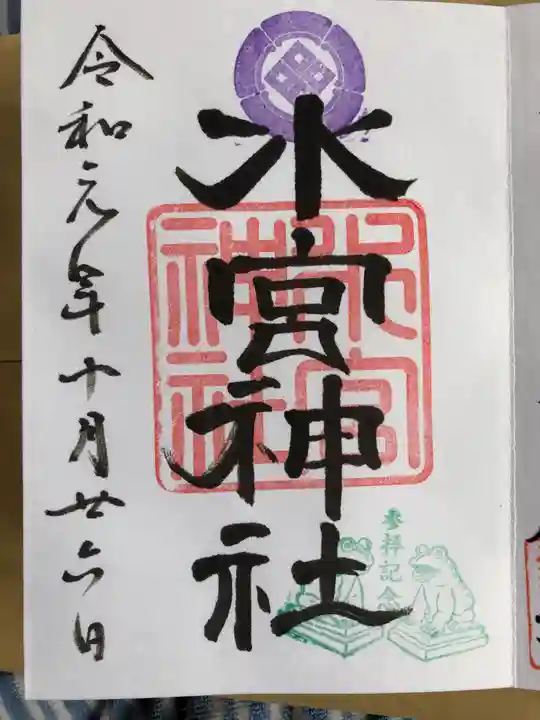 水宮神社
水宮神社
参拝記念
令和元年十月廿六日